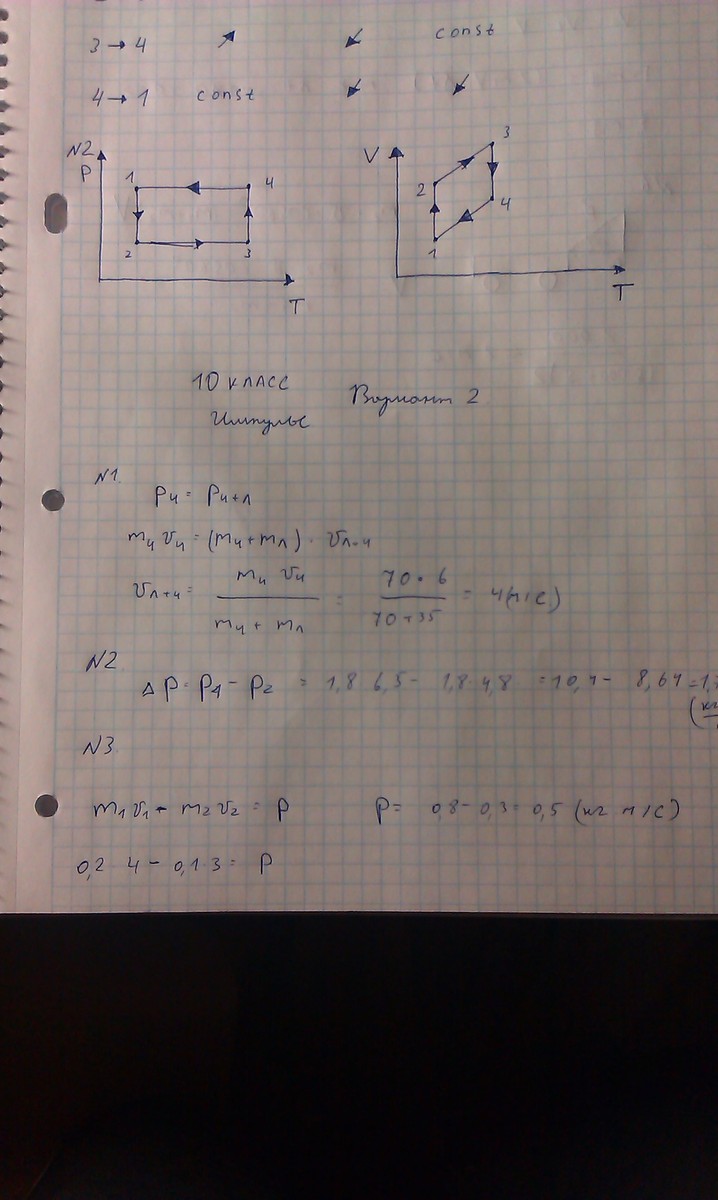 3 → 4 ↗ ↙ const
4 → 1 const ↙ ↙
N2
P 1 4 2 3 T
V 3 2 4 1 T
10 класс Вариант 2
Импульс
N1.
pч = pч+л
mч vч = (mч + mл) · vл+ч
vл+ч = mч vч / mч + mл = 70 · 6 / 70 + 35 = 4 (м/с)
N2
Δ p = p1 - p2 = 1,8 6,5 - 1,8 · 4,8 = 10,4 - 8,64 = 1,
N3
m1 v1 - m2 v2 = p p = 0,8 - 0,3 = 0,5 (кг м/с)
0,2 4 - 0,1 · 3 = p